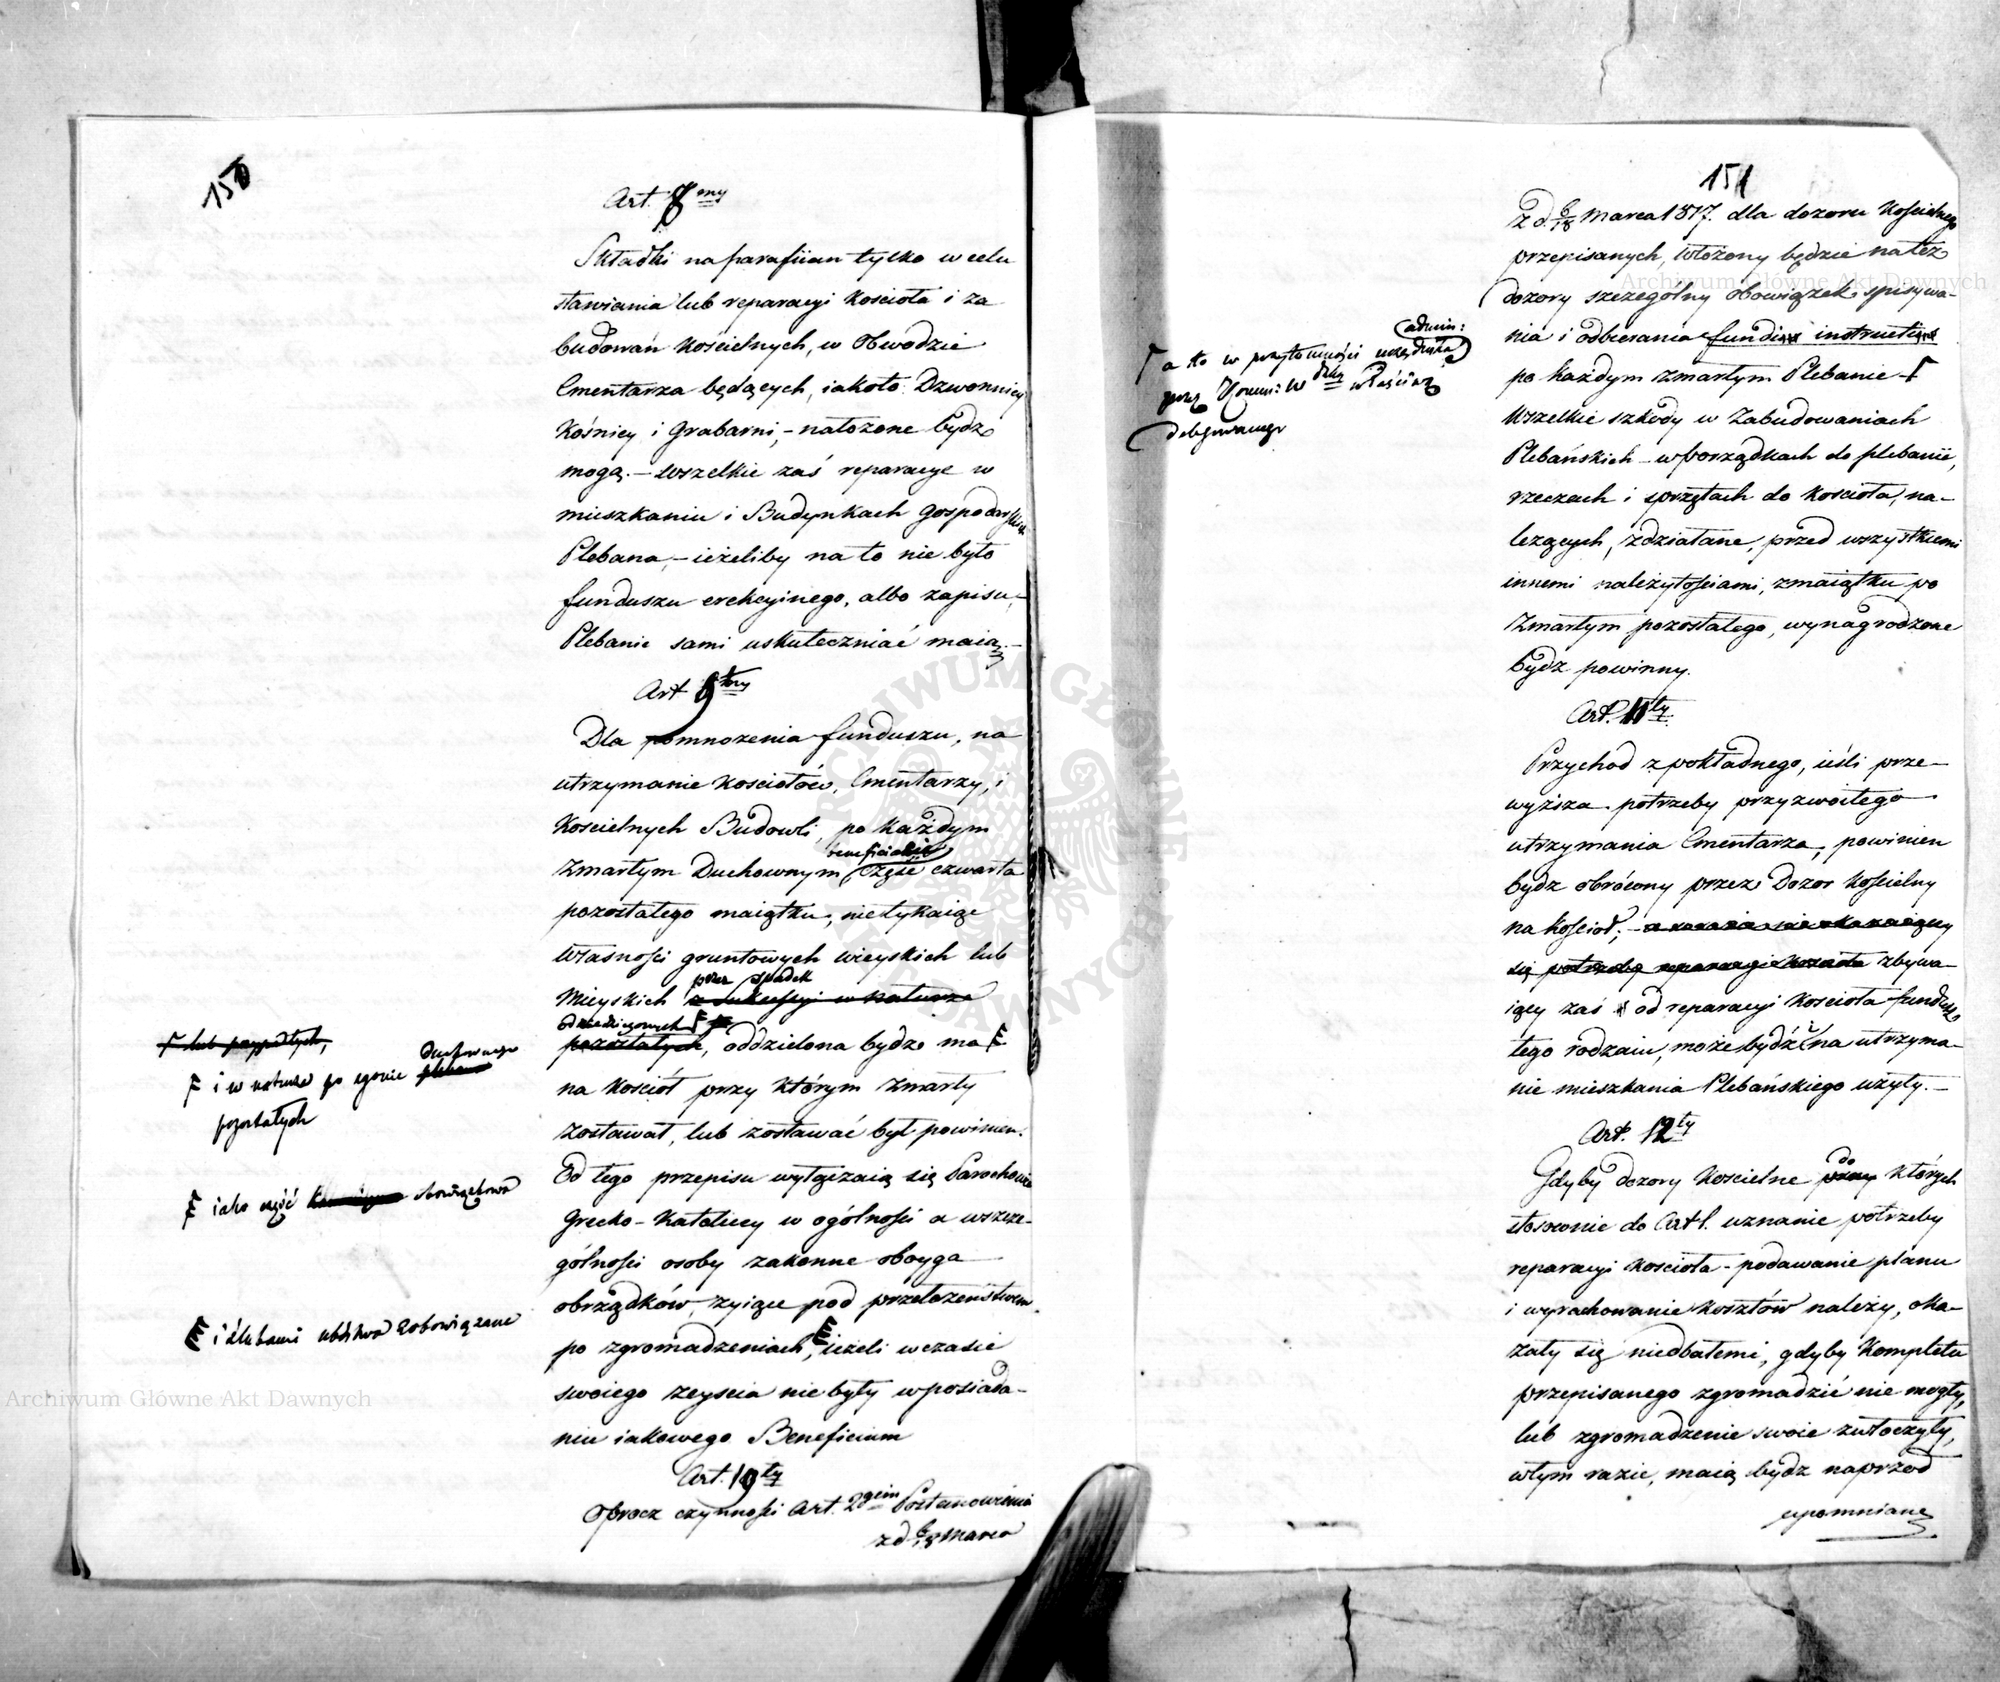 150
Art. 8my
Składki na parafiian tylko w celu
stawiania lub reparacyi Kościoła i za
budowań Kościelnych, w Obwodzie
Cmentarza będących, iakoto: Dzwonnicy
Kośnicy i Grabarni, – nałożone bydź
mogą. – Wszelkie zaś reparacye w
mieszkaniu i Budynkach Gospodarskich
Plebana, – ieżeliby na to nie było
funduszu erekcyinego, albo zapisu,
Plebanie sami uskuteczniać maią. –
Art 9ty
Dla pomnożenia funduszu, na
utrzymanie Kościołów, Cmentarzy, i
Kościelnych Budowli, po każdym
beneficialnie
Zmarłym Duchownym część czwarta
pozostałego maiątku, nietykaiąc
Własności gruntowych wieyskich lub
przez spadek
Mieyskich z sukcessyi w naturze
odziedziczonych
pozostałych, oddzielona bydź ma
na Kościół przy którym Zmarły
zostawał, lub zostawać był powinien.
Od tego przepisu wyłączaią się Parochowie
Grecko-Katoliccy w ogólności a wszcze-
gólności osoby zakonne oboyga
obrządków, żyiące pod przełożeństwem
po zgromadzeniach, ieżeli w czasie
swoiego zeyścia nie były w posiada-
niu iakowego Beneficium
Art. 10ty
Oprócz czynności Art. 2giem Postanowienia
z d 6/18 Marca
lub
i w naturze po zgonie Duchownego
pozostałych
iako część obowiązkowa
i ślubami ubóstwa zobowiązane
151
z d. 6/18 Marca 1817. dla dozoru Kościelnego
przepisanych, włożony będzie na też
dozory szczególny obowiązek spisywa-
nia i odbierania fundi instructi
po każdym zmarłym Plebanie –
Wszelkie szkody w Zabudowaniach
Plebańskich – w porządkach do plebanii,
rzeczach i sprzętach do Kościoła, na-
leżących, zdziałane, przed wszystkiemi
innemi należytościami, z maiątku po
Zmarłym pozostałego, wynagrodzone
bydź powinny.
Art. 11ty
Przychód z pokładnego, ieśli prze-
wyższa potrzeby przyzwoitego
utrzymania Cmentarza, powinien
bydź obrócony przez Dozor Kościelny
na Kościół; –
się potrzebę reparacyi zbywa-
iący zaś od reparacyi Kościoła fundusz
tego rodzaiu, może bydź i na utrzyma-
nie mieszkania Plebańskiego użyty. –
Art. 12ty
do
Gdyby dozory Kościelne przy których
stosownie do Art 1. uznanie potrzeby
reparacyi Kościoła – podawanie planu
i wyrachowanie kosztów należy, oka-
zały się niedbałemi, gdyby Kompletu
przepisanego zgromadzić nie mogły,
lub zgromadzenie swoie zwłoczyły,
w tym razie, maią bydź naprzód
upomniane
admin:
a to w przytomności urzędnika
przez Kommi: W dzką właściwą
delegowanego
Archiwum Główne Akt Dawnych
Archiwum Główne Akt Dawnych
ARCHIWUM GŁÓWNE AKT DAWNYCH